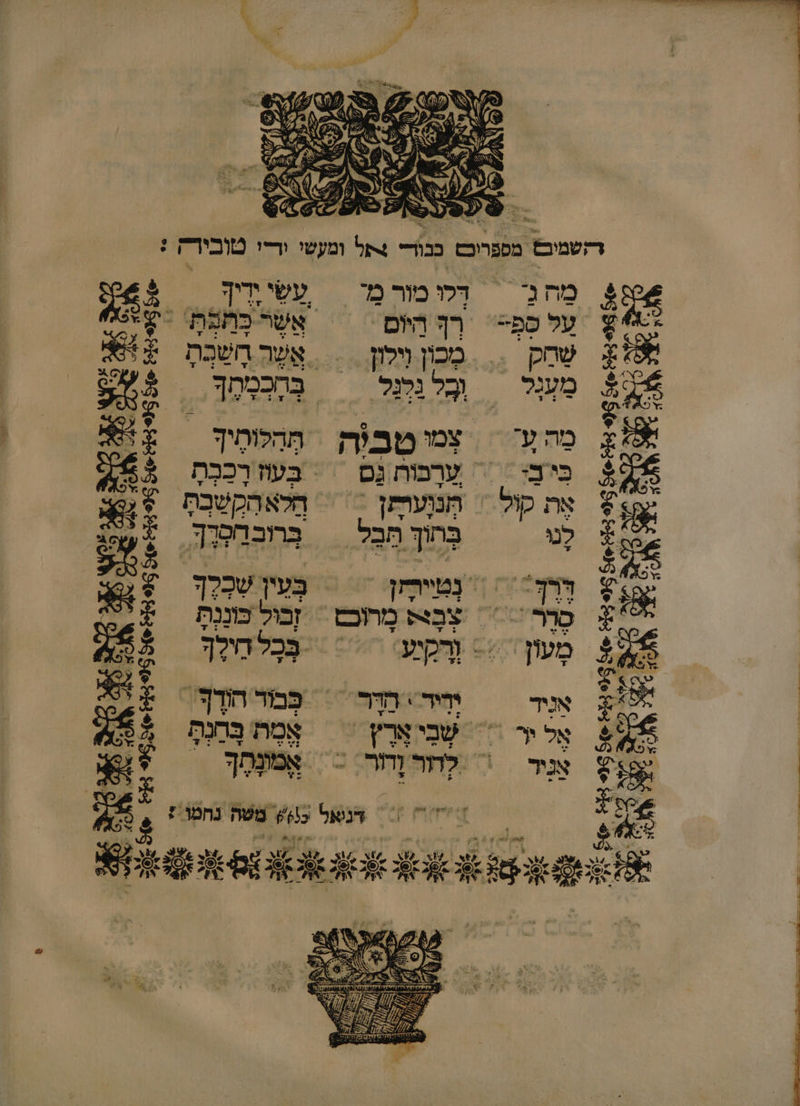 השמים מספרים כבוד אל ומעשי ידיו טוביה :
מַה גָ־ דְלוּ מוֹר מַ־ עֲשֵׂי יָדֶיךָ
עַל סִפְ־ רְךָ הַיּוֹם אֲשֶׁר כָּתַבְתָּ
שַׁחַק מָכוֹן וִילוֹן אֲשֶׁר חָשַׁבְתָּ
מַעְגַּל וְכָל גַּלְגַּל בְּחָכְמָתֶךָ
מַה עָ־ צְמוּ טבִיָּה תְּהִלּוֹתֶיךָ
כִּי בָ־ עֲרָבוֹת גַּם בְּעוֹז רָכַבְתָּ
אֶת קוֹל תְּנוּעָתָן הֲלֹא הִקְשַׁבְתָּ
לָנוּ בְּתוֹךְ תֵּבֵל בְּרוֹב חַסְדֶּךָ
דֶּרֶךְ נְטִיָּיתָן בְּעֵין שִׂכְלֶךָ
סֵדֶר צְבָא מָרוֹם זְבוּל כּוֹנַנְתָּ
מָעוֹן וְרָקִיעַ בְּכָל חֵילֶךָ
אַגִּיד יְדִיד הֲדַר כְּבוֹד הוֹדֶךָ
אֶל יוֹ־ שְׁבֵי אֶרֶץ אֱמֶת בָּחַנְתָּ
אַגִּיד לְדוֹר וָדוֹר אֱמוּנָתֶךָ
דניאל משה נחמו :